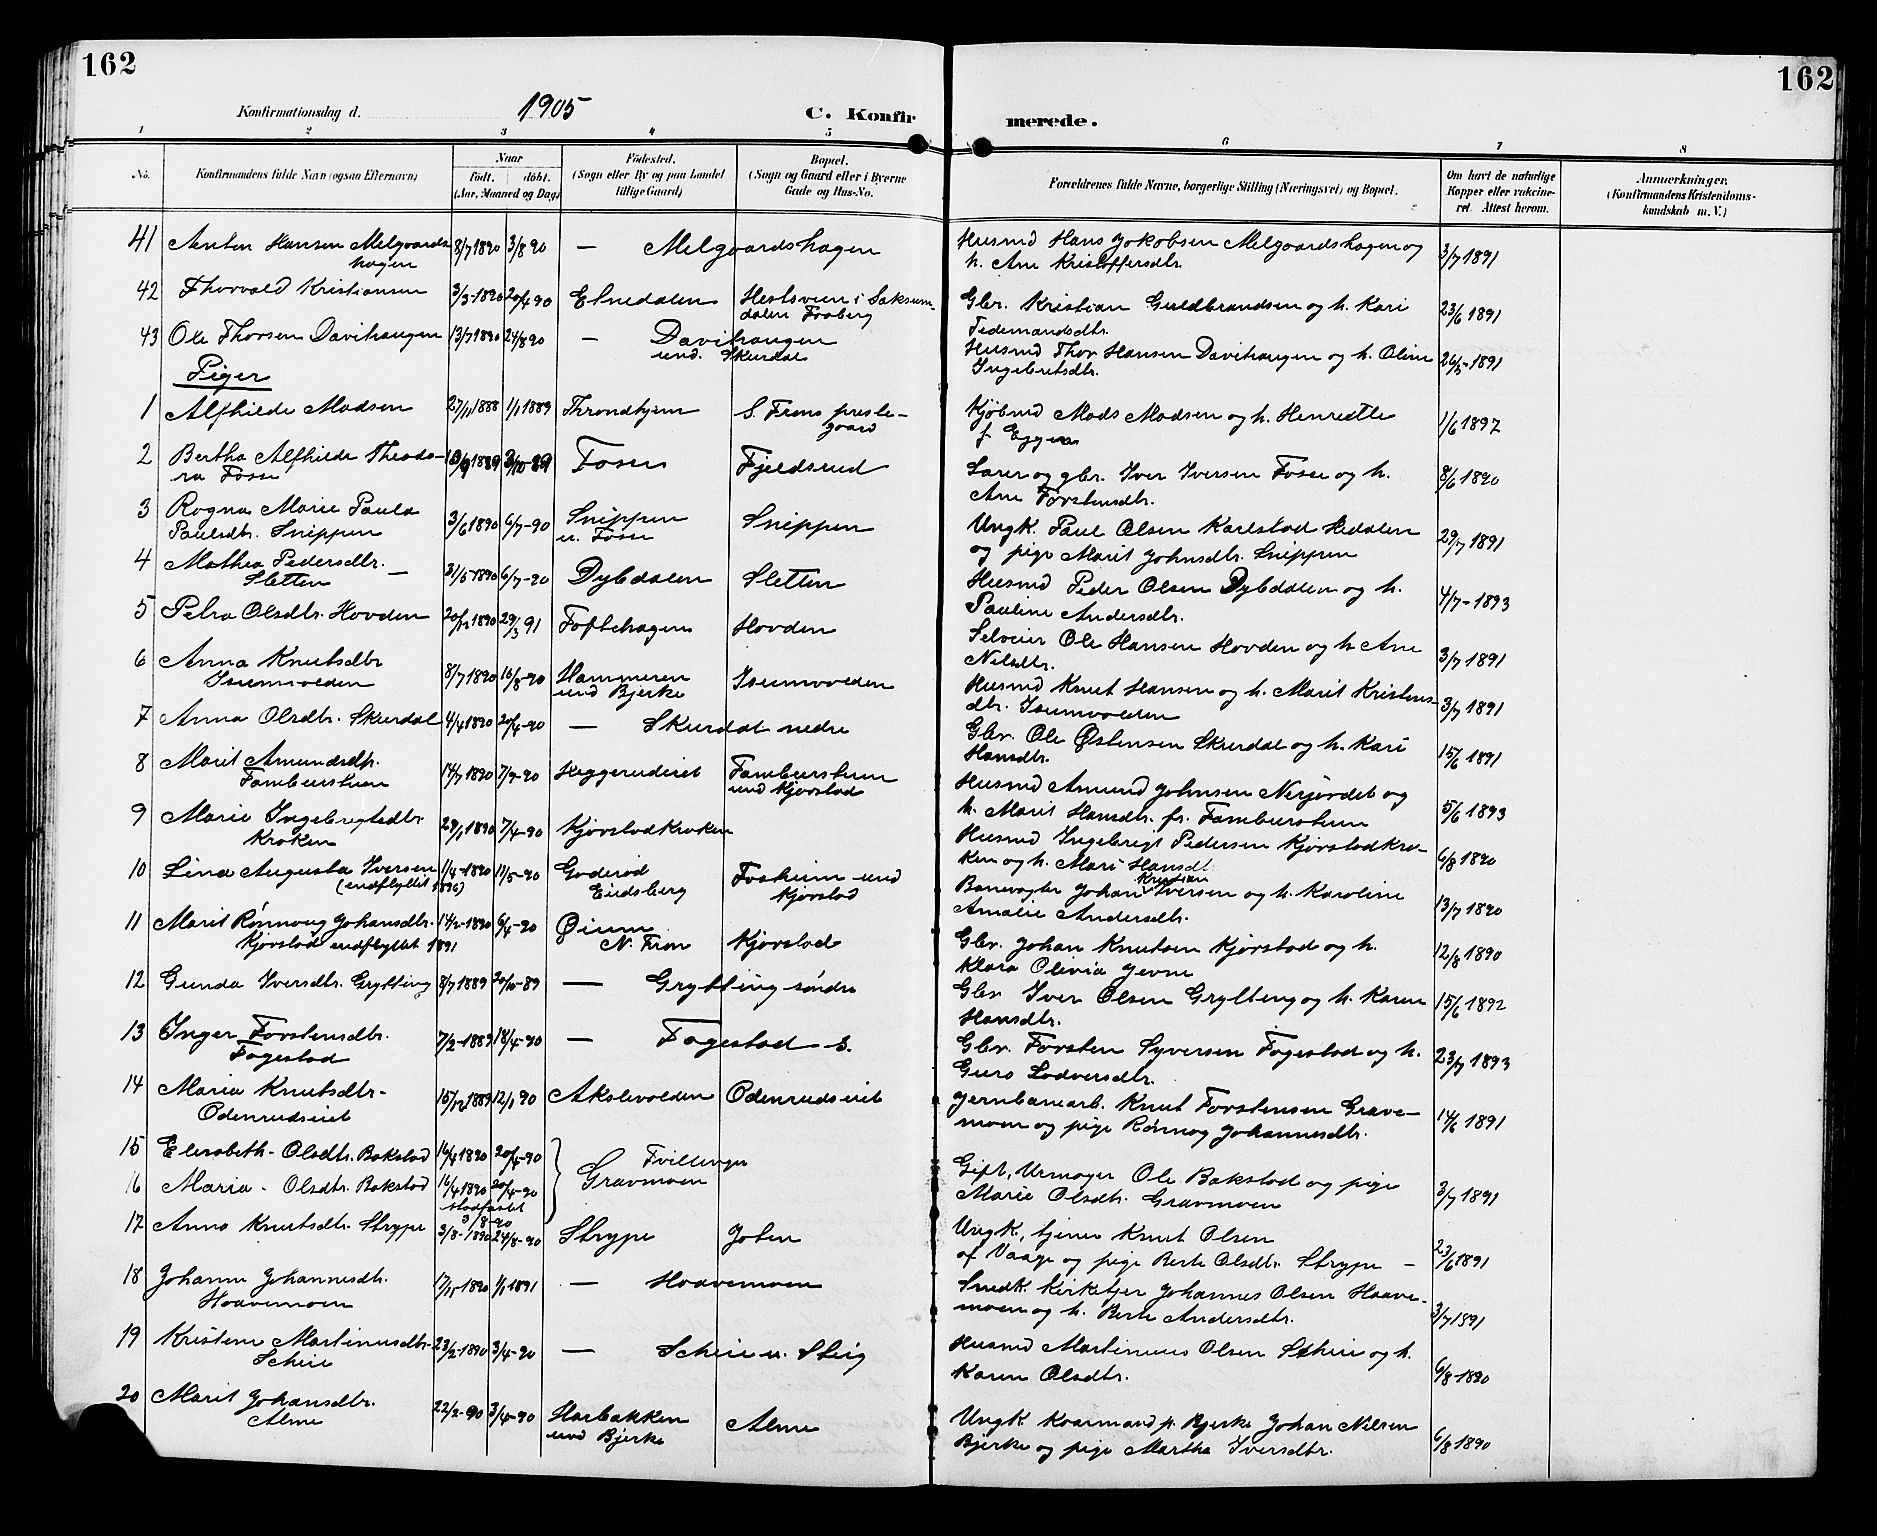 162
162
Konfirmationsdag d. 1905
C. Konfirmerede.
1 2 3 4 5 6 7 8
No.
Konfirmandens fulde Navn (ogsaa Efternavn)
Naar
født. døbt.
(Aar, Maaned og Dag)
Fødested.
(Sogn eller By og paa Landet
tillige Gaard)
Bopæl.
(Sogn og Gaard eller i Byerne
Gade og Hus-No.
Forældrenes fulde Navne, borgerlige Stilling (Næringsvei) og Bopæl.
Om havt de naturlige
Kopper eller vakcine-
ret. Attest herom.
Anmærkninger.
(Konfirmandens Kristendoms-
kundskab m. V.)
41 Anton Hansen Melgaards- 8/7 1890 3/8 90 — Melgaardshagen Husmd Hans Jakobsen Melgaardshagen og 3/7 1891
hagen h. Ane Kristoffersdtr.
42 Thorvald Kristiansen 3/3-1890 20/4 90 Etnedalen Hestsveen i Saksum- Gbr. Kristian Guldbrandsen og h. Kari 23/6 1891
dalen Faaberg Tedemandsdtr.
43 Ole Thorsen Davihaugen 13/7 1890 24/8 90 — Davihaugen Husmd Thor Hansen Davihaugen og h. Oline 26/5-1891
und. Skurdal Ingebretsdtr.
Piger
1 Alfhilde Madsen 27/11 1888 1/1 1889 Throndhjem S. Frons preste- Kjøbmd Mads Madsen og h. Henriette 1/6 1897
gaard f. Eggen
2 Bertha Alfhilde Theodo- 1889 3/10-89 Fosse Fjeldseed Lærer og gbr. Iver Iversen Fosse og h. 8/6 1890
ra Fosse Ane Torstensdtr.
3 Ragna Marie Paula 3/6 1890 6/7-90 Snippen Snippen Ungk. Paul Olsen Karlstad Hedalen 29/7 1891
Paulsdtr. Snippen u. Fosse og pige Marit Johnsdtr. Snippen
4 Mathea Pedersdtr. — 31/5 1890 6/7-90 Dybdalen Sletten Husmd Peder Olsen Dybdalen og h. 4/7-1893
Sletten Pauline Andersdtr.
5 Petra Olsdtr. Hovden 20/12 1890 29/3 91 Toftehagen Hovden Selveier Ole Hansen Hovden og h. Ane 3/7 1891
Nilsdtr.
6 Anna Knutsdtr 8/7 1890 16/8-90 Hammeren Isumvolden Husmd Knut Hansen og h. Marit Kristens- 3/7 1891
Isumvolden und Bjerke dtr. Isumvolden
7 Anna Olsdtr. Skurdal 4/4 1890 20/4-90 — Skurdal nedre Gbr. Ole Østensen Skurdal og h. Kari 15/6 1891
Hansdtr.
8 Marit Amundsdtr. 14/7 1890 7/9-90 Keggerudeiet Tamburstuen Husmd Amund Johnsen Nerjordet og 5/6 1893
Tamburstuen und Kjørstad h. Marit Hansdtr. fr. Tamburstuen
9 Marie Ingebrigtsdtr 29/1 1890 7/4-90 Kjørstadkroken Husmd Ingebrigt Pedersen Kjørstadkro- 6/8 1890
Kroken ken og h. Mari Hansdt
10 Lina Augusta Iversen 11/4-1890 11/5-90 Goderød Fosheim und Banevogter Johan Kristian Iversen og h. Karoline 13/7 1890
(indflyttet 1896) Eidsberg Kjørstad Amalie Andersdtr.
11 Marit Rønnoug Johansdtr. 14/2-1890 6/4-90 Øium Kjørstad Gbr. Johan Knutsen Kjørstad og h. 12/8 1890
Kjørstad indflyttet 1891 N. Fron Klara Olivia Jevne
12 Gunda Iversdtr. Grytting 8/7 1889 20/10-89 — Grytting søndre Gbr Iver Olsen Grytting og h. Karen 15/6 1892
Hansdtr.
13 Inger Torstensdtr. 7/2-1889 18/4-90 — Fagestad s. Gbr. Torsten Syversen Fagestad og h. 23/7 1893
Fagestad Guro Lodversdtr.
14 Maria Knutsdtr- 15/12 1889 12/1 90 Akslevolden Odenrudseiet Jernbanearb. Knut Torstensen Grave- 14/6 1891
Odenrudseiet moen og pige Rønnog Johannesdtr.
15 Elisabeth- Olsdtr. Bakstad 16/4 1890 20/4-90 Tvillinger
16 Maria - Olsdtr. Bakstad 16/4 1890 20/4-90 Gravmoen Gift, Urmager Ole Bakstad og pige 3/7 1891
stadfæstet Marie Olsdtr. Gravmoen
3/8-90
17 Anna Knutsdtr. Strype 3/8-1890 24/8-90 Strype Joten Ungk, tjener Knut Olsen 23/6 1891
af Vaage og pige Berte Olsdtr. Strype —
18 Johanne Johannesdtr. 1890 1/1 1891 — Haavemoen Snedk. Kirketjer Johannes Olsen Haave- 3/7 1891
Haavemoen moen og h. Berte Andersdtr.
19 Kristine Martinusdtr- 23/2-1890 3/4-90 — Scheie u. Steig Husmd Martinus Olsen Scheie og h. 6/8-1890
Scheie Karen Olsdtr.
20 Marit Johansdtr. 22/2-90 3/4-90 Harbakken Alme Ungk Kaarmand p. Bjerke Johan Nilsen 6/8 1890
Alme und Bjerke Bjerke og pige Marthe Iversdtr.